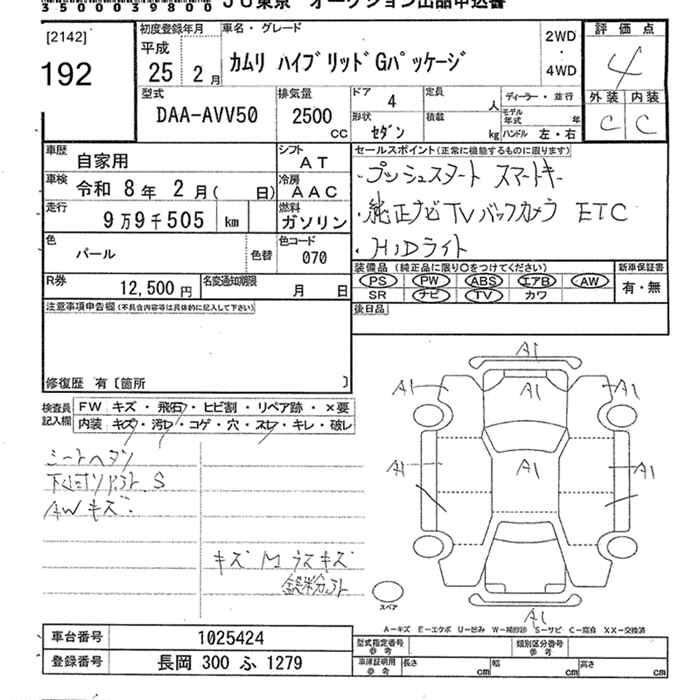 3500039800 JU東京 オークション出品申込書
[2142]
192
初度登録年月
平成
25年 2月
車名・グレード
カムリ ハイブリッドGパッケージ
2WD
・
4WD
評価点
4
外装 内装
C C
型式
DAA-AVV50
排気量
2500
cc
ドア 4
形状 セダン
定員 人
積載 kg
ディーラー・並行
モデル年式 年
ハンドル 左・右
車歴 自家用
シフト AT
車検 令和 8年 2月( 日)
冷房 AAC
走行 9万9千505 km
燃料 ガソリン
色 パール
色替
色コード 070
R券 12,500円
名変通知期限 月 日
セールスポイント(正常に機能するものに限ります)
・プッシュスタート スマートキー
・純正ナビTVバックカメラ ETC
・HIDライト
装備品(純正品に限り○をつけてください)
PS PW ABS エアB AW
SR ナビ TV カワ
新車保証書
有・無
後日品
注意事項申告欄(不具合内容等は具体的に記入して下さい)
修復歴 有〔箇所 〕
検査員記入欄
FW キズ・飛石・ヒビ割・リペア跡・×要
内装 キズ・汚レ・コゲ・穴・スレ・キレ・破レ
シートヘタリ
下廻リ S
AWキズ
キズ M ラスキズ
A1
A1 A1 A1
A1 A1 A1
A1
スペア
A-キズ E-エクボ U-凹み W-補修跡 S-サビ C-腐食 XX-交換済
車台番号 1025424
登録番号 長岡 300 ふ 1279
型式指定番号 参考
類別区分番号 参考
車庫証明用 参考
長さ cm 幅 cm 高さ cm